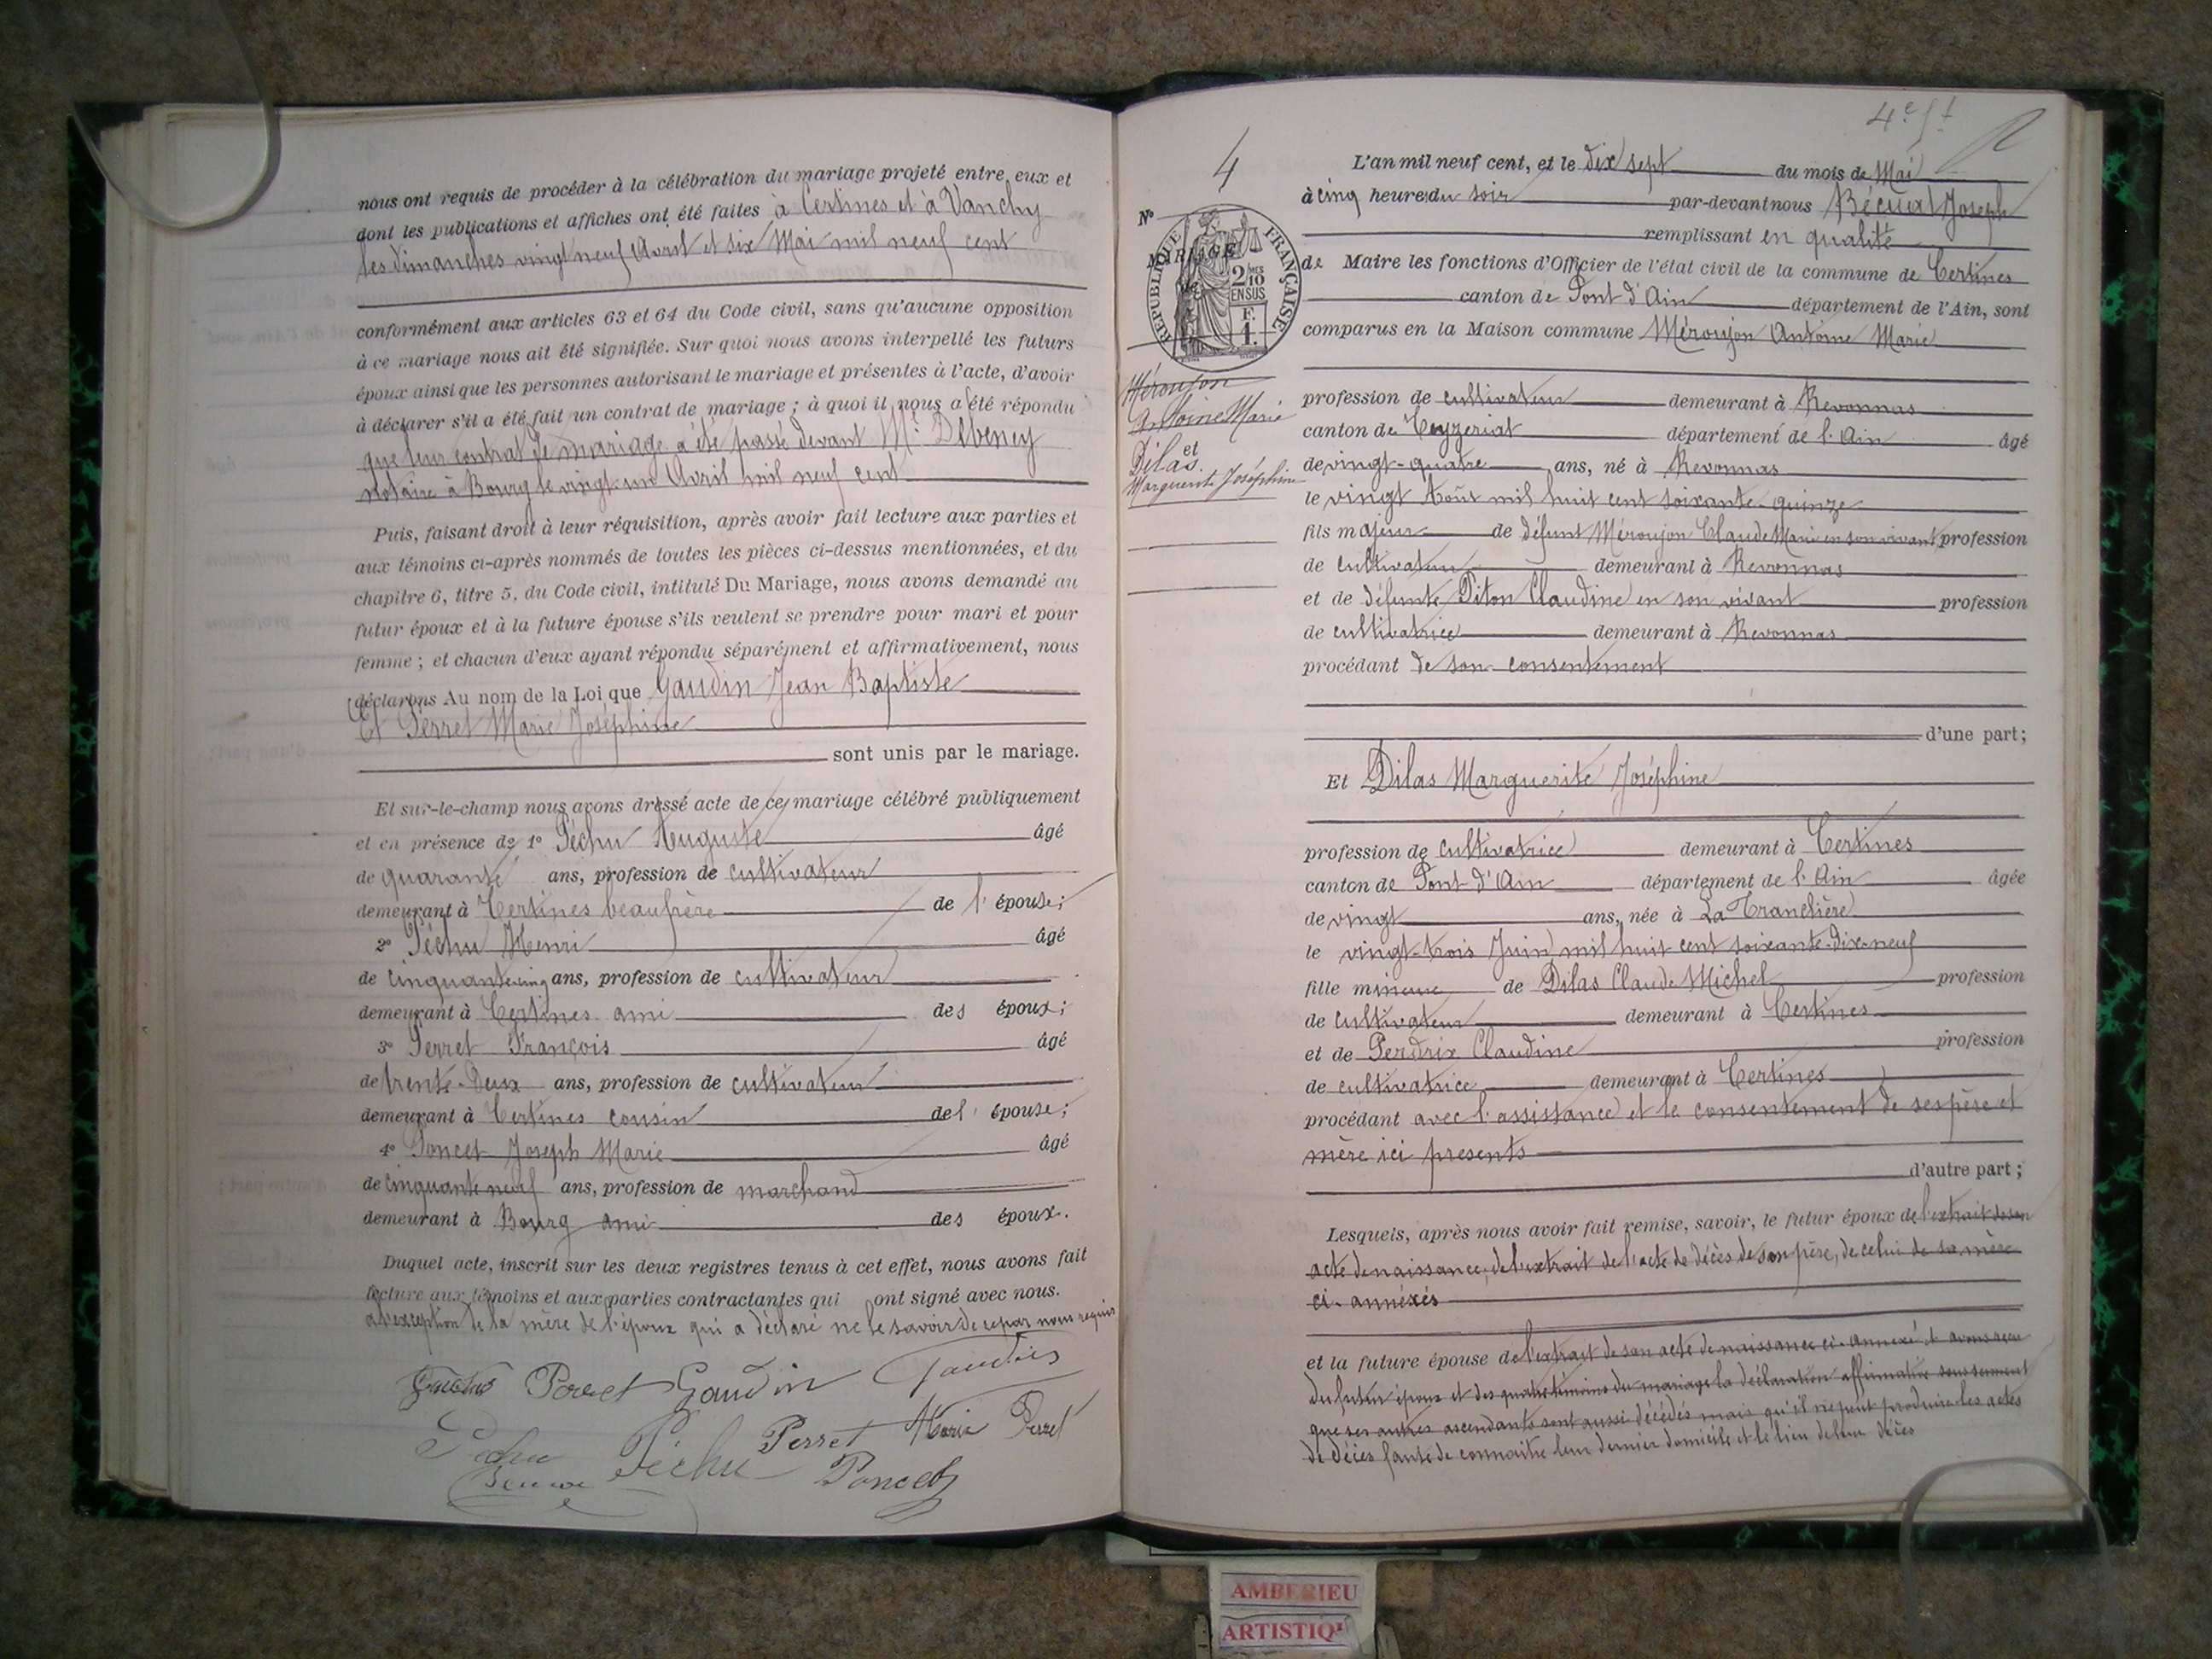 nous ont requis de procéder à la célébration du mariage projeté entre eux et
dont les publications et affiches ont été faites à Certines et à Vanchy
les dimanches vingt neuf Avril et six Mai mil neuf cent
conformément aux articles 63 et 64 du Code civil, sans qu'aucune opposition
à ce mariage nous ait été signifiée. Sur quoi nous avons interpellé les futurs
époux ainsi que les personnes autorisant le mariage et présentes à l'acte, d'avoir
à déclarer s'il a été fait un contrat de mariage ; à quoi il nous a été répondu
que leur contrat de mariage a été passé devant Me Debeney
notaire à Bourg le vingt-un Avril mil neuf cent
Puis, faisant droit à leur réquisition, après avoir fait lecture aux parties et
aux témoins ci-après nommés de toutes les pièces ci-dessus mentionnées, et du
chapitre 6, titre 5, du Code civil, intitulé Du Mariage, nous avons demandé au
futur époux et à la future épouse s'ils veulent se prendre pour mari et pour
femme ; et chacun d'eux ayant répondu séparément et affirmativement, nous
déclarons Au nom de la Loi que Gaudin Jean Baptiste
Et Perret Marie Joséphine
sont unis par le mariage.
Et sur-le-champ nous avons dressé acte de ce mariage célébré publiquement
et en présence de 1° Péchu Auguste âgé
de quarante ans, profession de cultivateur
demeurant à Certines beaufrère de l'épouse ;
2° Péchu Henri âgé
de cinquante cinq ans, profession de cultivateur
demeurant à Certines ami des époux ;
3° Perret François âgé
de trente-deux ans, profession de cultivateur
demeurant à Certines cousin de l'épouse ;
4° Poncet Joseph Marie âgé
de cinquante neuf ans, profession de marchand
demeurant à Bourg ami des époux.
Duquel acte, inscrit sur les deux registres tenus à cet effet, nous avons fait
lecture aux témoins et aux parties contractantes qui ont signé avec nous.
à l'exception de la mère de l'époux qui a déclaré ne le savoir de ce par nous requis
Perret Gaudin Gaudin
Péchu Péchu Perret Marie Perret
Poncet
4e ft
4
L'an mil neuf cent, et le dix sept du mois de Mai
à cinq heures du soir par-devant nous Bécuat Joseph
remplissant en qualité
de Maire les fonctions d'Officier de l'état civil de la commune de Certines
canton de Pont d'Ain département de l'Ain, sont
comparus en la Maison commune Méroujon Antoine Marie
N°
MARIAGE
RÉPUBLIQUE FRANÇAISE
2 MES
10
EN SUS
F.
1.
Méroujon
Antoine Marie
et
Dilas
Marguerite Joséphine
profession de cultivateur demeurant à Revonnas
canton de Ceyzeriat département de l'Ain âgé
de vingt-quatre ans, né à Revonnas
le vingt Août mil huit cent soixante-quinze
fils majeur de défunt Méroujon Claude Marie en son vivant profession
de cultivateur demeurant à Revonnas
et de défunte Piton Claudine en son vivant profession
de cultivatrice demeurant à Revonnas
procédant de son consentement
d'une part ;
Et Dilas Marguerite Joséphine
profession de cultivatrice demeurant à Certines
canton de Pont-d'Ain département de l'Ain âgée
de vingt ans, née à La Tranclière
le vingt-trois Juin mil huit cent soixante-dix-neuf
fille mineure de Dilas Claude Michel profession
de cultivateur demeurant à Certines
et de Perdrix Claudine profession
de cultivatrice demeurant à Certines
procédant avec l'assistance et le consentement de ses père et
mère ici présents
d'autre part ;
Lesquels, après nous avoir fait remise, savoir, le futur époux de l'extrait de son
acte de naissance, de l'extrait de l'acte de décès de son père, de celui de sa mère
ci-annexés
et la future épouse de l'extrait de son acte de naissance ci-annexé et avons reçu
du futur époux et des quatre témoins du mariage la déclaration affirmative sous serment
que ses autres ascendants sont aussi décédés mais qu'il ne peut produire les actes
de décès faute de connaître leur dernier domicile et le lieu de leur décès
AMBERIEU
ARTISTIQ